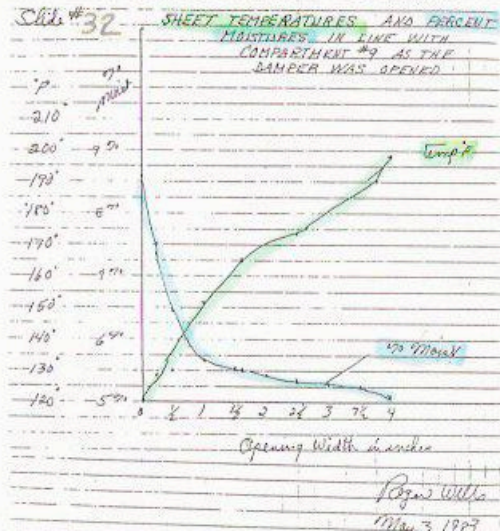 Slide #32
SHEET TEMPERATURES AND PERCENT
MOISTURES IN LINE WITH
COMPARTMENT #9 AS THE
DAMPER WAS OPENED
°F % Moist
210°
200° 9%
190°
180° 8%
170°
160° 7%
150°
140° 6%
130°
120° 5%
Temp °F
% Moist
0 ½ 1 1½ 2 2½ 3 3½ 4
Opening Width in inches
Roger Wells
May 3, 1989